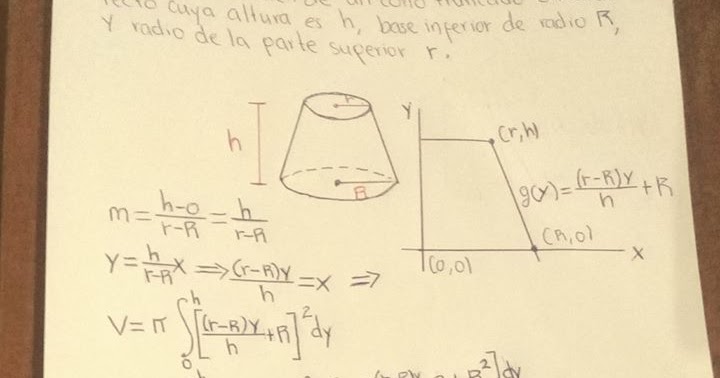 recto cuya altura es h, base inferior de radio R,
Y radio de la parte superior r.
r
h
R
Y
(r,h)
g(Y)=\frac{(r-R)Y}{h}+R
(R,0)
(0,0)
X
m=\frac{h-0}{r-R}=\frac{h}{r-R}
Y=\frac{h}{r-R}X ⟹ \frac{(r-R)Y}{h}=X ⟹
V=π∫_0^h[\frac{(r-R)Y}{h}+R]^2dy
R^2]dy